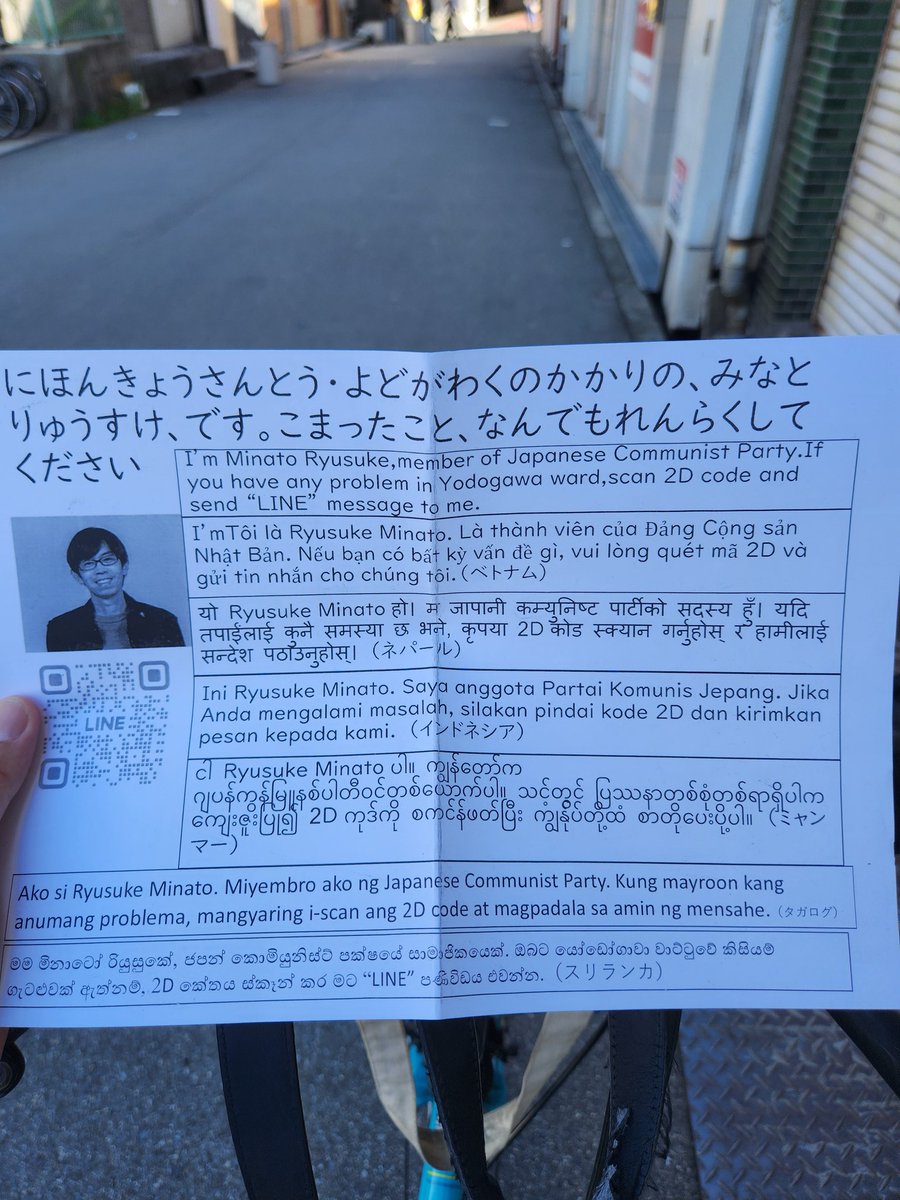 にほんきょうさんとう・よどがわくのかかりの、みなと
りゅうすけ、です。こまったこと、なんでもれんらくして
ください
I'm Minato Ryusuke,member of Japanese Communist Party.If
you have any problem in Yodogawa ward,scan 2D code and
send “LINE” message to me.
I'mTôi là Ryusuke Minato. Là thành viên của Đảng Cộng sản
Nhật Bản. Nếu bạn có bất kỳ vấn đề gì, vui lòng quét mã 2D và
gửi tin nhắn cho chúng tôi.(ベトナム)
यो Ryusuke Minato हो। म जापानी कम्युनिष्ट पार्टीको सदस्य हुँ। यदि
तपाईंलाई कुनै समस्या छ भने, कृपया 2D कोड स्क्यान गर्नुहोस् र हामीलाई
सन्देश पठाउनुहोस्। (ネパール)
LINE
Ini Ryusuke Minato. Saya anggota Partai Komunis Jepang. Jika
Anda mengalami masalah, silakan pindai kode 2D dan kirimkan
pesan kepada kami. (インドネシア)
ငါ Ryusuke Minato ပါ။ ကျွန်တော်က
ဂျပန်ကွန်မြူနစ်ပါတီဝင်တစ်ယောက်ပါ။ သင့်တွင် ပြဿနာတစ်စုံတစ်ရာရှိပါက
ကျေးဇူးပြု၍ 2D ကုဒ်ကို စကင်န်ဖတ်ပြီး ကျွန်ုပ်တို့ထံ စာတိုပေးပို့ပါ။ (ミャン
マー)
Ako si Ryusuke Minato. Miyembro ako ng Japanese Communist Party. Kung mayroon kang
anumang problema, mangyaring i-scan ang 2D code at magpadala sa amin ng mensahe. (タガログ)
මම මිනාටෝ රියුසුකේ, ජපන් කොමියුනිස්ට් පක්ෂයේ සාමාජිකයෙක්. ඔබට යෝඩෝගාවා වාට්ටුවේ කිසියම්
ගැටළුවක් ඇත්නම්, 2D කේතය ස්කෑන් කර මට “LINE” පණිවිඩය එවන්න. (スリランカ)